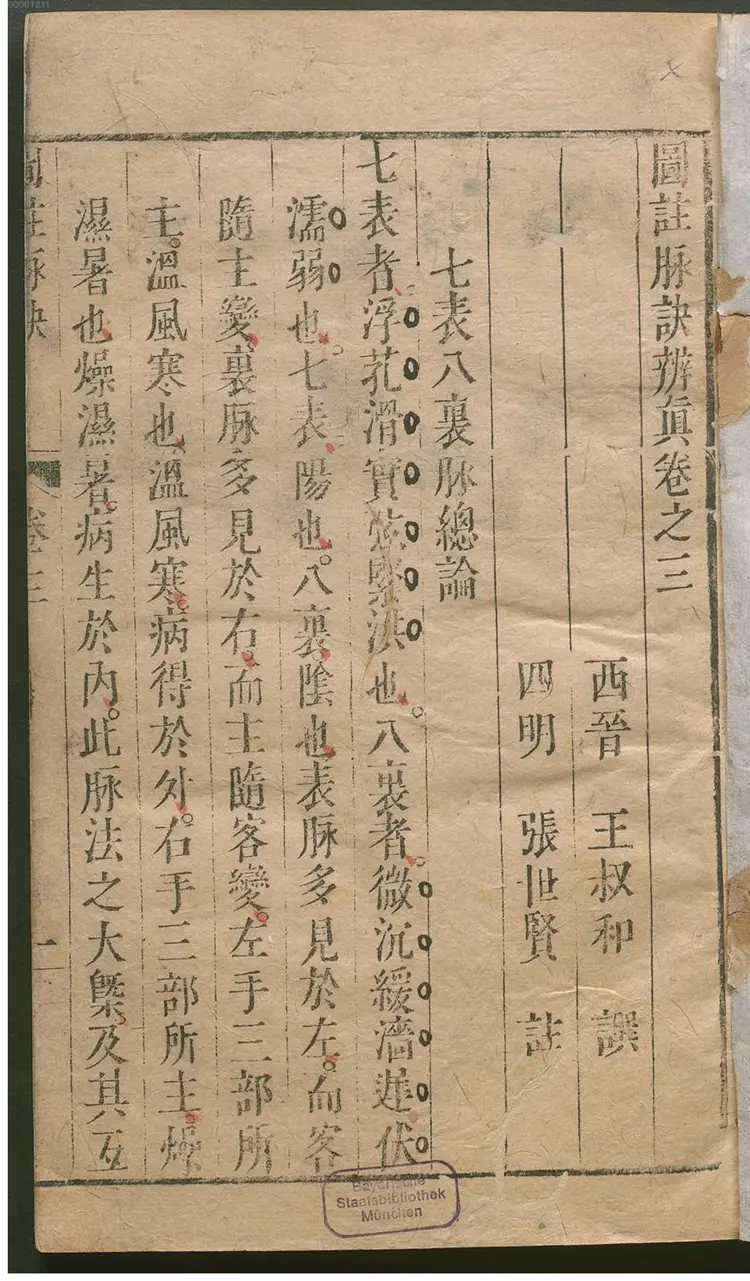 圖註脉訣辨眞卷之三
西晉　王叔和　譔
四明　張世賢　註
七表八裏脉總論
七表者浮芤滑實弦緊洪也八裏者微沉緩濇遲伏
濡弱也七表陽也八裏陰也表脉多見於左而客
隨主變裏脉多見於右而主隨客變左手三部所
主溫風寒也溫風寒病得於外右手三部所主燥
濕暑也燥濕暑病生於內此脉法之大槩及其互
圖註脉訣
卷之三
一
Bayerische
Staatsbibliothek
München
00081211